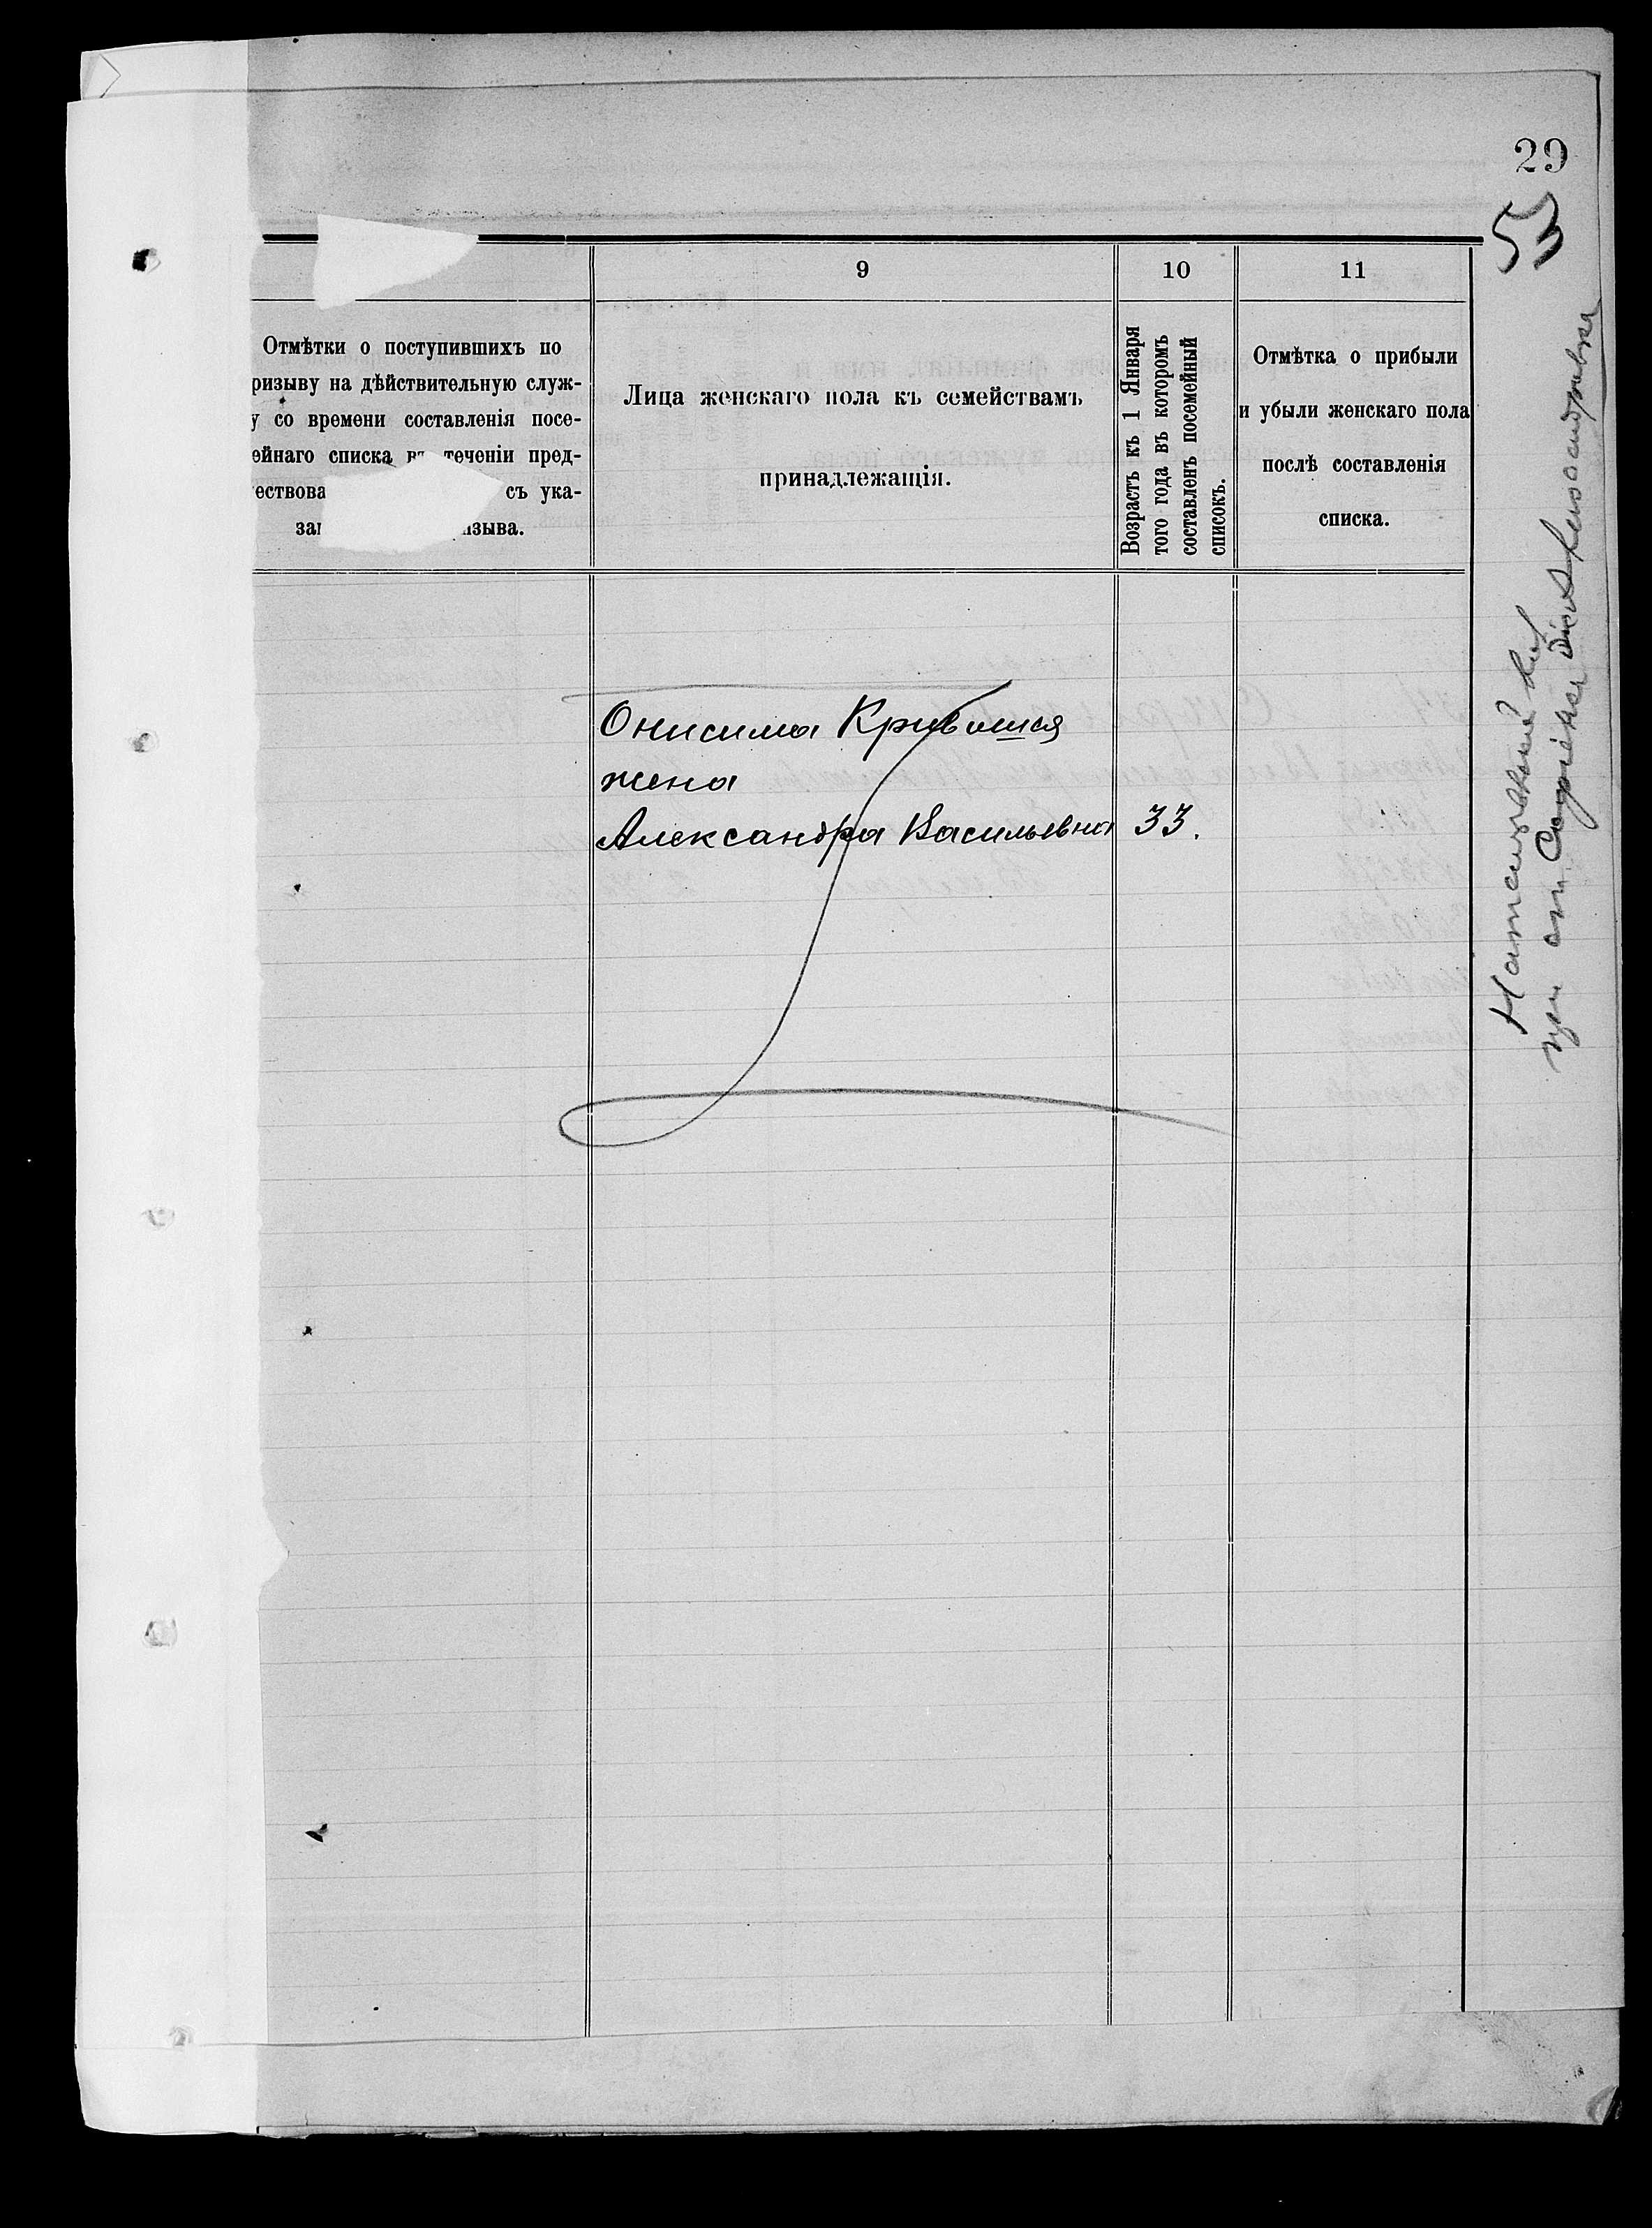 29
53
9
10
11
Отмѣтки о поступившихъ по
ризыву на дѣйствительную служ-
у со времени составленія посе-
ейнаго списка въ теченіи пред-
ествова съ ука-
зан изыва.
Лица женскаго пола къ семействамъ
принадлежащія.
Возрастъ къ 1 Января
того года въ которомъ
составленъ посемейный
списокъ.
Отмѣтка о прибыли
и убыли женскаго пола
послѣ составленія
списка.
Онисима
жена
Александра Васильевна 33.